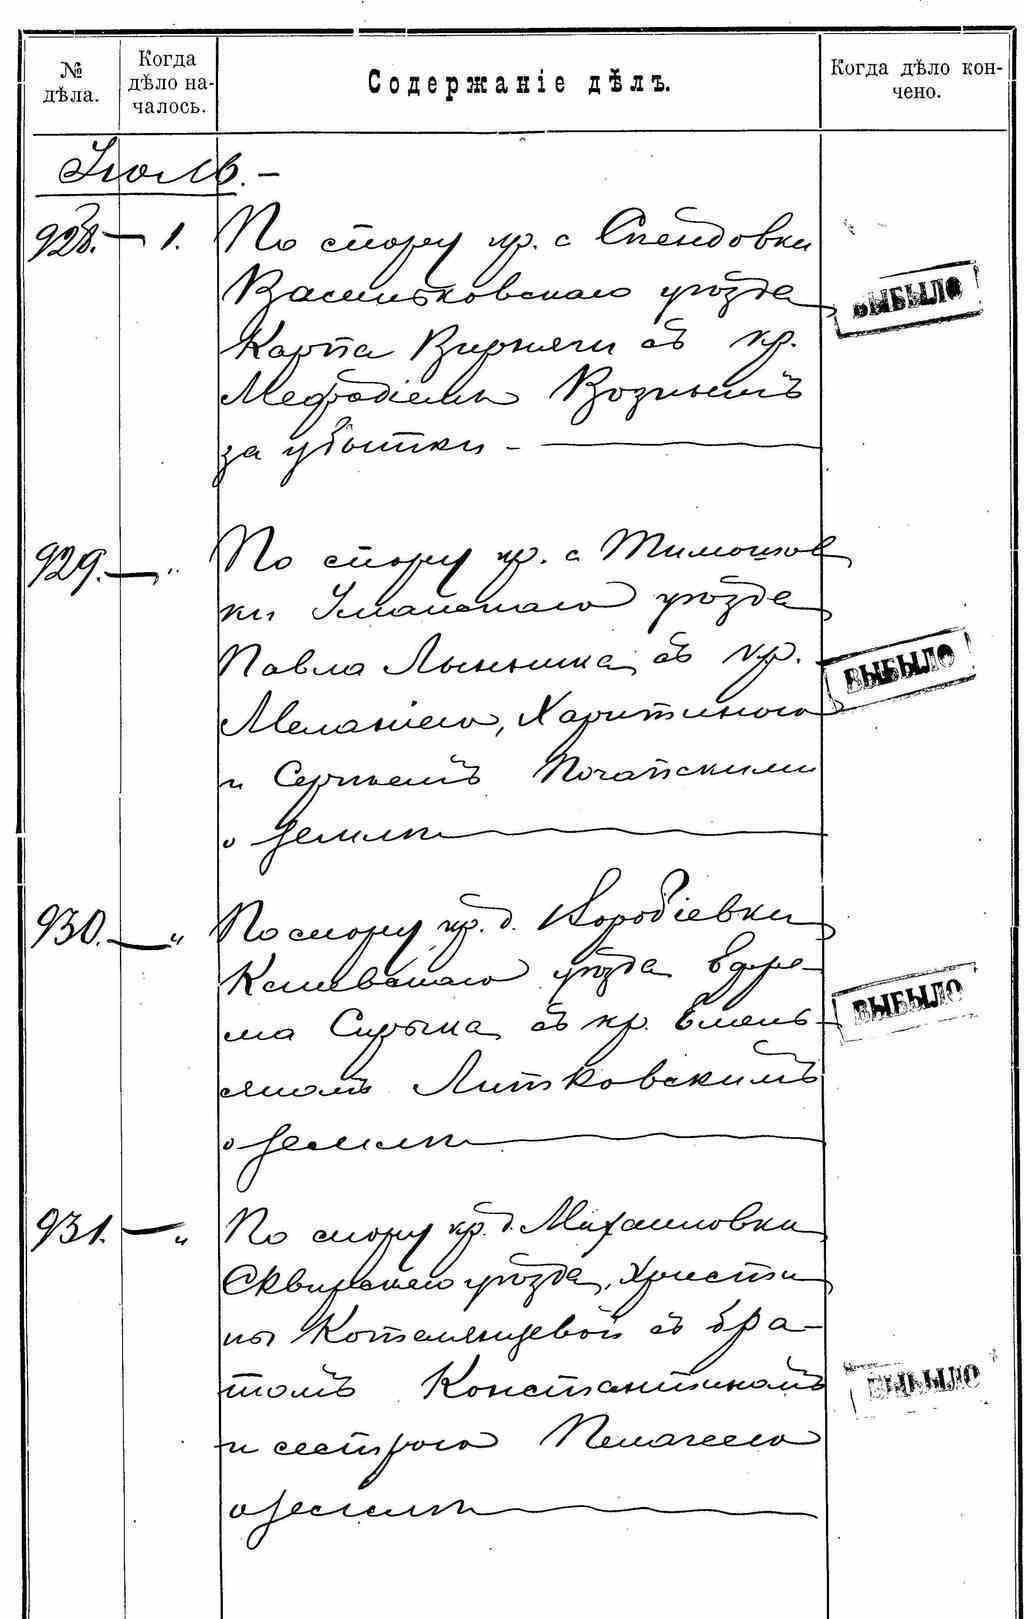 № дѣла.
Когда дѣло на-
чалось.
Содержаніе дѣлъ.
Когда дѣло кон-
чено.
Іюль. -
928. — 1. По спору кр. с Спендовки
Васильковскаго уѣзда
Карпа Вирняги съ кр.
Мефодіемъ Вознымъ
за убытки -
ВЫБЫЛО
929. — " По спору кр. с Тимошов
ки Уманскаго уѣзда
Павла Лынника съ кр.
Меланіею, Харитиною
и Сергѣемъ Почапскими
о землѣ
ВЫБЫЛО
930. — " По спору кр. д. Воробіевки
Кіевскаго уѣзда Ефре-
ма Сирыка съ кр. Емель-
яномъ Литковскимъ
о землѣ
ВЫБЫЛО
931. — " По спору кр. д. Михайловки
Сквирскаго уѣзда, Христи
ны Котелянцевой съ бра-
томъ Константиномъ
и сестрою Пелагеею
о землѣ
ВЫБЫЛО